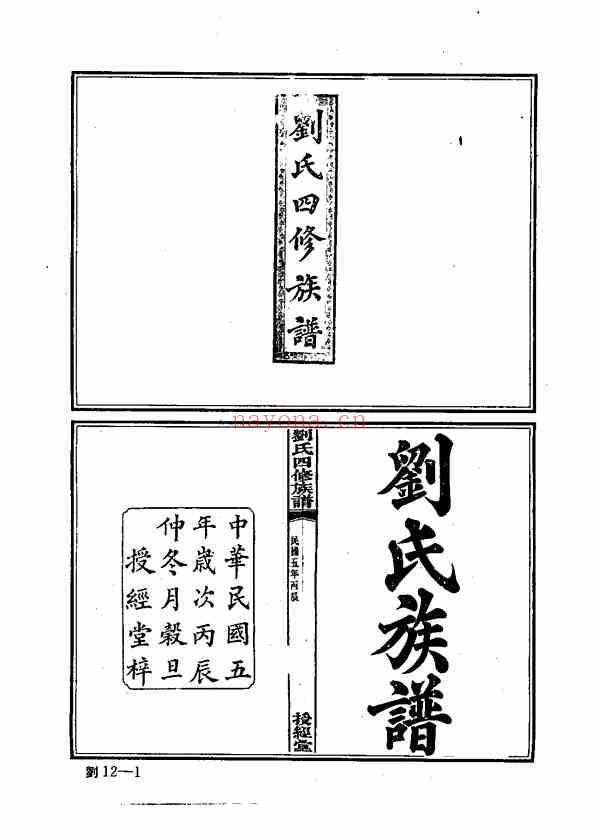 劉氏四修族譜
nayona.cn
劉氏族譜
劉氏四修族譜
民國五年丙辰
授經堂
中華民國五
年歲次丙辰
仲冬月穀旦
授經堂梓
劉 12—1